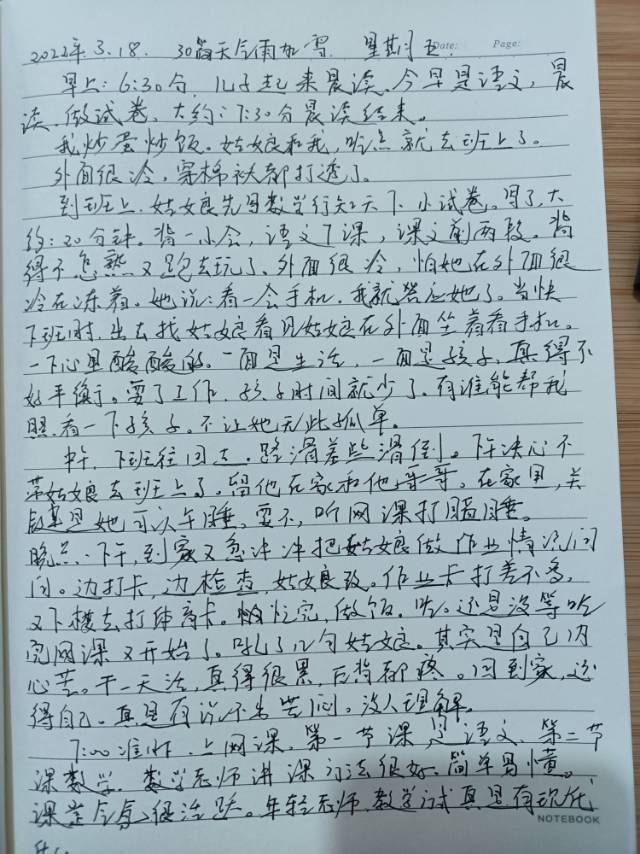 2022年.3.18. 30篇天气雨加雪. 星期五 Date: Page:
早上: 6:30分. 儿子起来晨读. 今早是语文, 晨
读. 做试卷. 大约: 7:30分晨读结束。
我炒蛋炒饭. 姑娘和我, 吃点就去班上了。
外面很冷, 穿棉袄都打透了。
到班上. 姑娘先写数学行知天下. 小试卷。写了, 大
约: 20分钟. 背一小会, 语文7课, 课文前两段. 背
得不怎熟又跑去玩了. 外面很冷, 怕她在外面很
冷在冻着。她说: 看一会手机. 我就答应她了。当快
下班时. 出去找姑娘看见姑娘在外面坐着看手机。
一下心里酸酸的. 一面是生活, 一面是孩子, 真得不
好平衡。要了工作. 孩子时间就少了. 有谁能帮我
照看一下孩子。不让她无此孤单。
中午, 下班往回走. 路滑差些滑倒。下午决心不
带姑娘去班上了, 留他在家和他哥哥。在家里, 关
键是她可以午睡. 要不, 听网课打瞌睡。
晚点. 下午, 到家又急冲冲把姑娘做作业情况问
问。边打卡, 边检查, 姑娘改。作业卡打差不多,
又下楼去打体育卡。忙完, 做饭. 吃. 还是没等吃
完网课又开始了。吼了几句姑娘。其实是自己内
心苦。干一天活, 真得很累, 后背都疼。回到家, 还
得自己. 真是有说不出苦闷. 没人理解。
7:00准时. 上网课. 第一节课是语文. 第二节
课数学. 数学老师讲课方法很好. 简单易懂。
课堂气氛很活跃。年轻老师. 教学方式真是有现代
NOTEBOOK